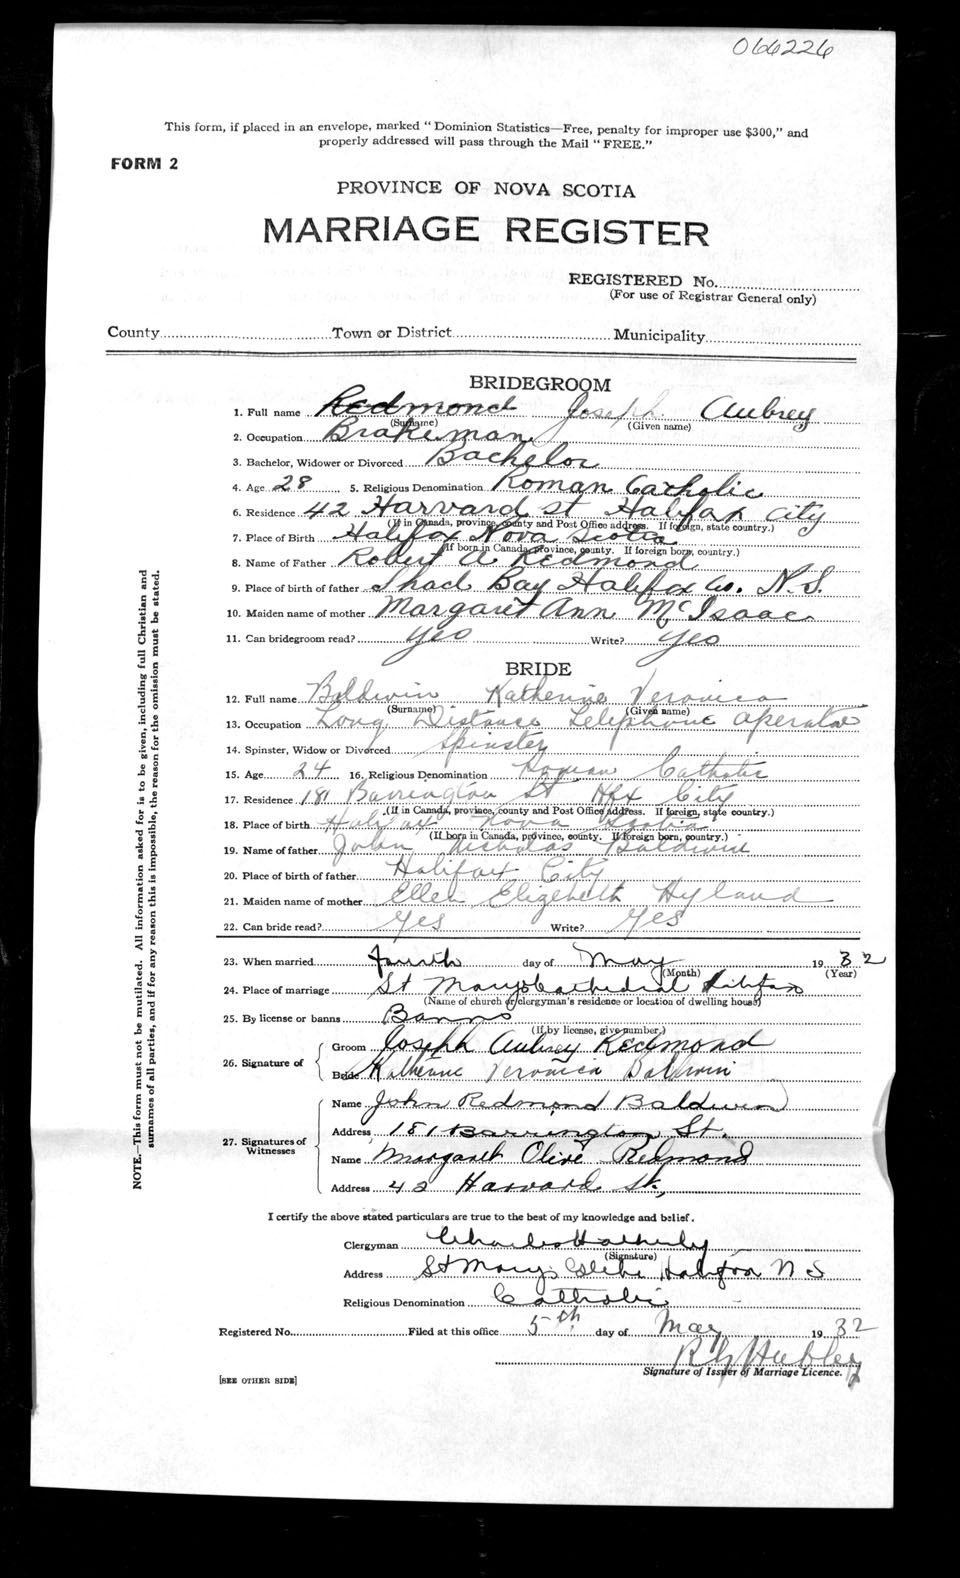 066226
This form, if placed in an envelope, marked “ Dominion Statistics—Free, penalty for improper use $300,” and
properly addressed will pass through the Mail “ FREE.”
FORM 2
PROVINCE OF NOVA SCOTIA
MARRIAGE REGISTER
REGISTERED No.
(For use of Registrar General only)
County Town or District Municipality
BRIDEGROOM
1. Full name Redmond Joseph Aubrey
(Surname) (Given name)
2. Occupation Brakeman
3. Bachelor, Widower or Divorced Bachelor
4. Age 28 5. Religious Denomination Roman Catholic
6. Residence 42 Harvard St Halifax City
(If in Canada, province, county and Post Office address. If foreign, state country.)
7. Place of Birth Halifax Nova Scotia
(If born in Canada, province, county. If foreign born, country.)
8. Name of Father Robert A Redmond
9. Place of birth of father Shad Bay Halifax Co. N.S.
10. Maiden name of mother Margaret Ann McIsaac
11. Can bridegroom read? yes Write? yes
BRIDE
12. Full name Baldwin Katherine Veronica
(Surname) (Given name)
13. Occupation Long Distance Telephone Operator
14. Spinster, Widow or Divorced Spinster
15. Age 24 16. Religious Denomination Roman Catholic
17. Residence 181 Barrington St Hfx City
(If in Canada, province, county and Post Office address. If foreign, state country.)
18. Place of birth Halifax Nova Scotia
(If born in Canada, province, county. If foreign born, country.)
19. Name of father John Nicholas Baldwin
20. Place of birth of father Halifax City
21. Maiden name of mother Ellen Elizebeth Hyland
22. Can bride read? Yes Write? Yes
23. When married fourth day of May 19 32
(Month) (Year)
24. Place of marriage St Marys Cathedral Halifax
(Name of church or clergyman's residence or location of dwelling house)
25. By license or banns Banns
(If by license, give number.)
26. Signature of
Groom Joseph Aubrey Redmond
Bride Katherine Veronica Baldwin
27. Signatures of Witnesses
Name John Redmond Baldwin
Address 181 Barrington St.
Name Margaret Olive Redmond
Address 42 Harvard St.,
I certify the above stated particulars are true to the best of my knowledge and belief.
Clergyman Charles
(Signature)
Address St Marys Glebe Halifax N S
Religious Denomination Catholic
Registered No. Filed at this office 5th day of May 19 32
Signature of Issuer of Marriage Licence.
[SEE OTHER SIDE]
NOTE.—This form must not be mutilated. All information asked for is to be given, including full Christian and
surnames of all parties, and if for any reason this is impossible, the reason for the omission must be stated.